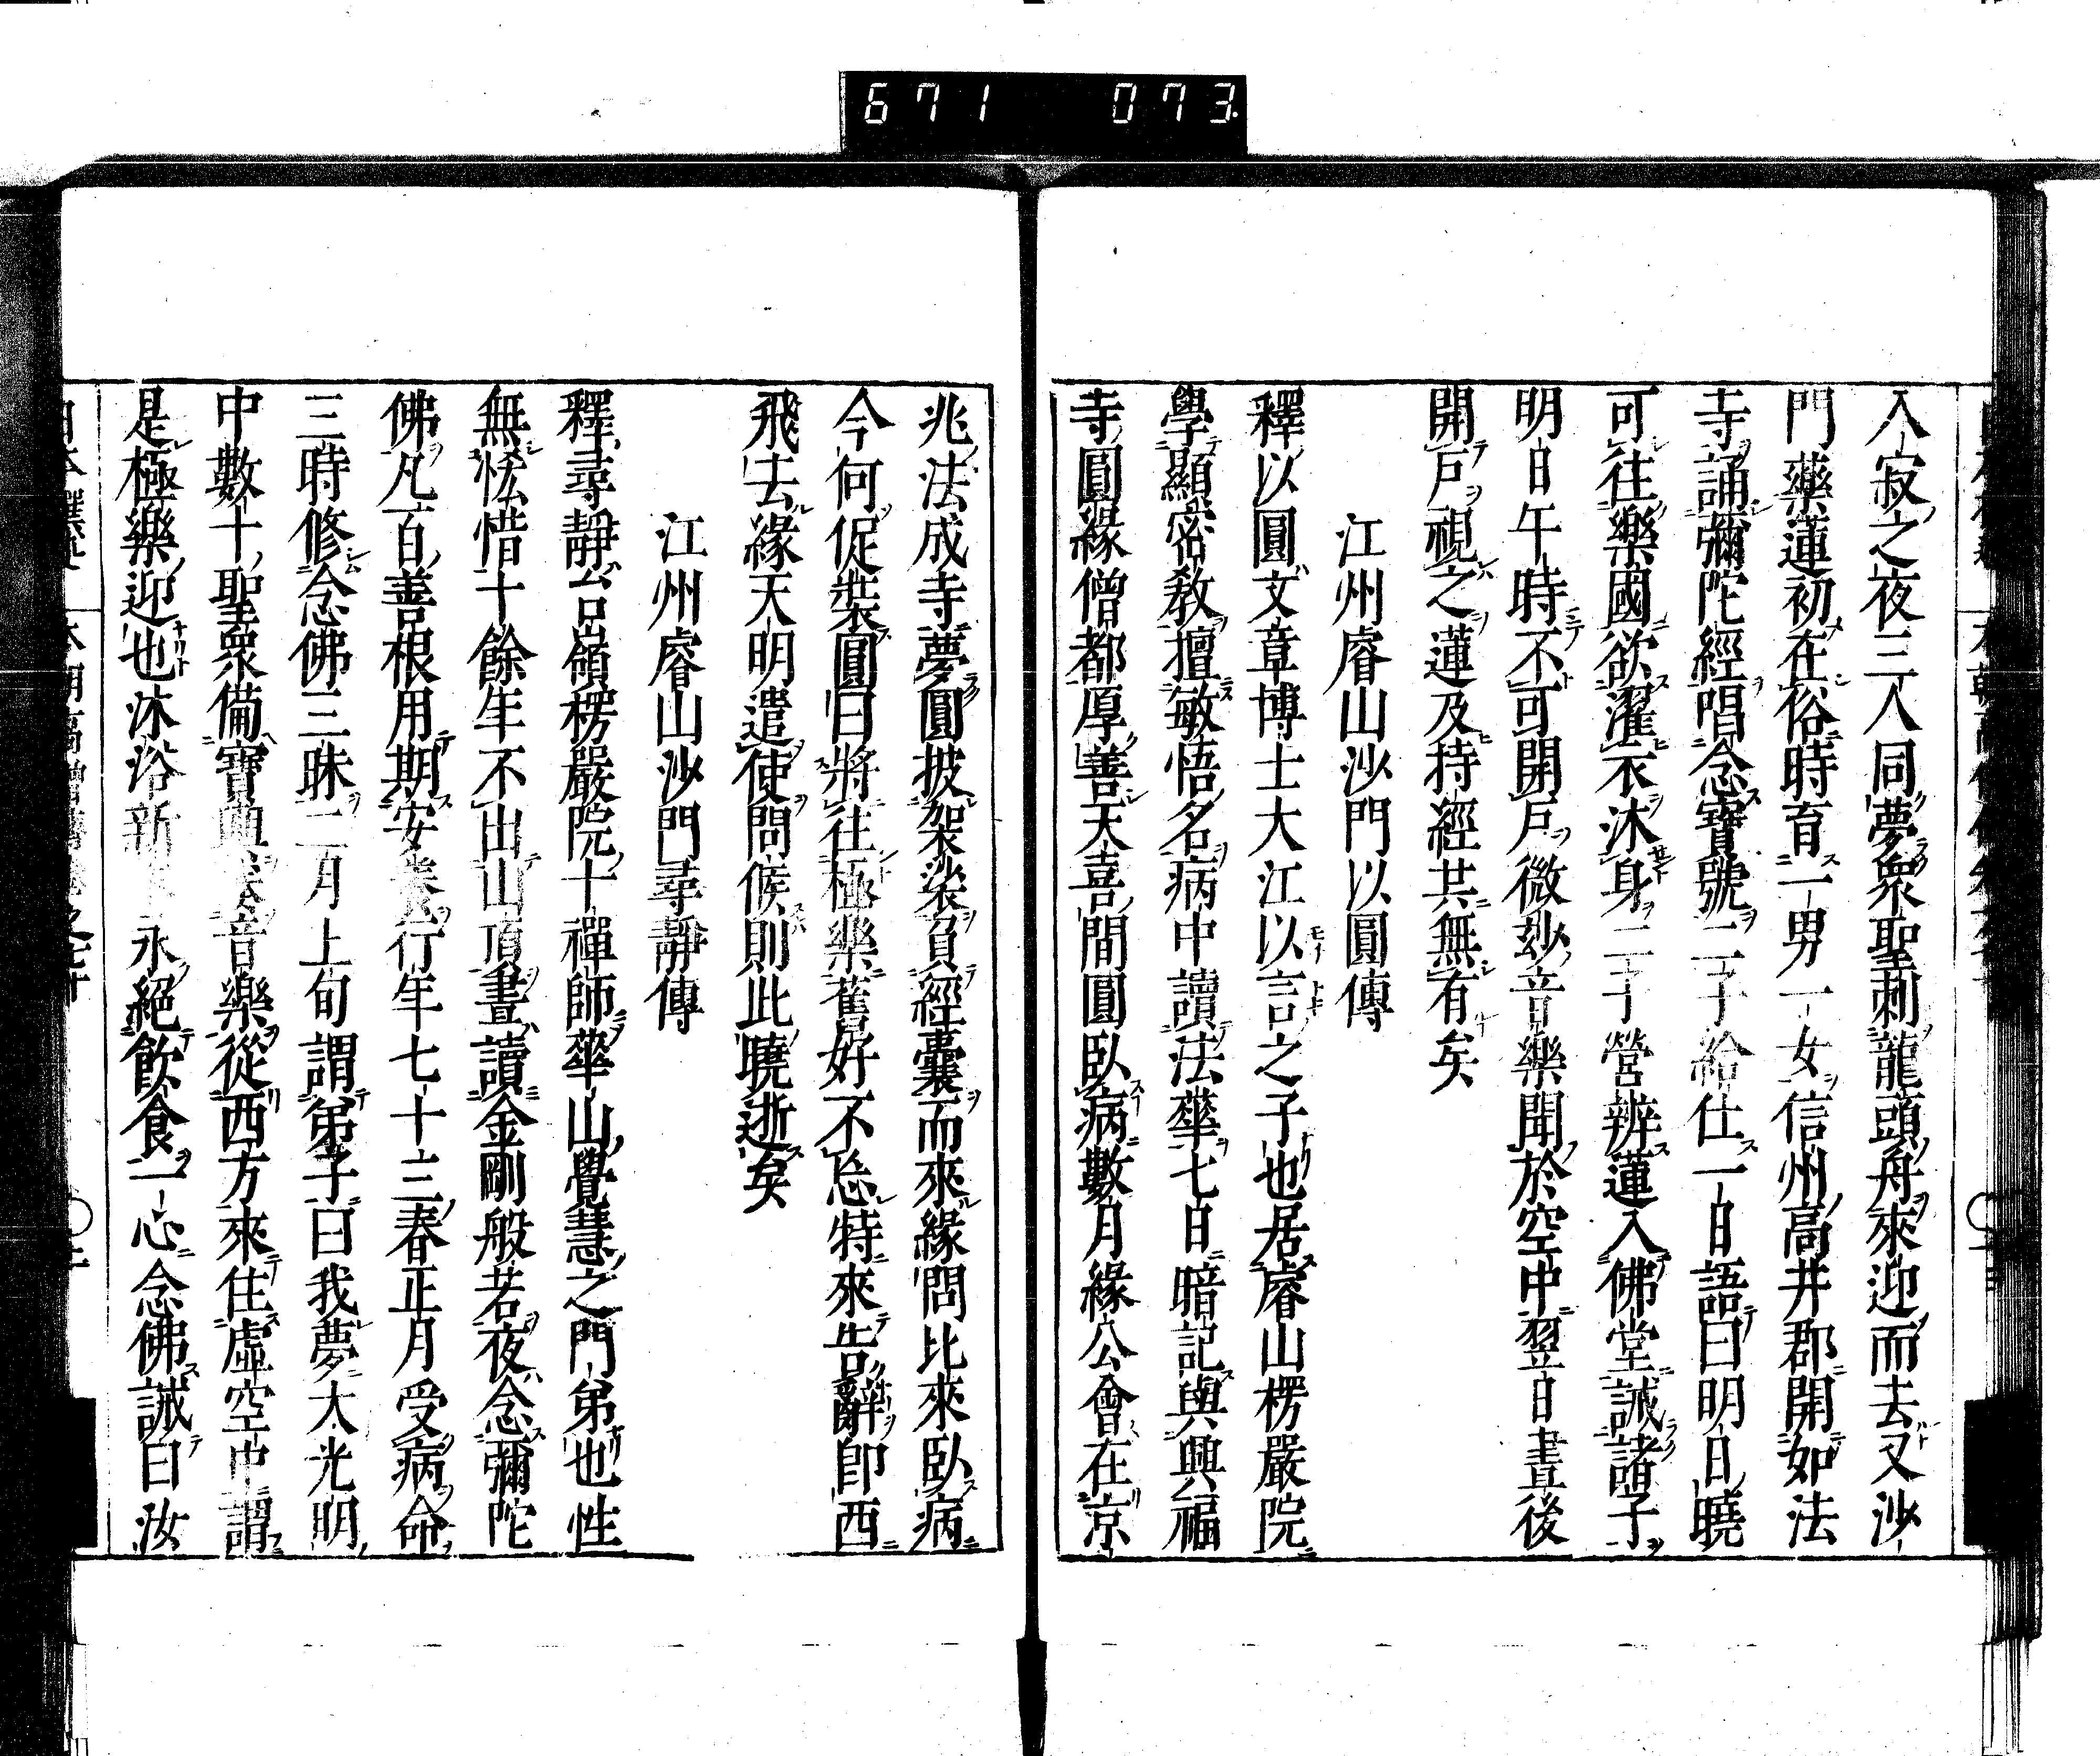 671 073
入寂之夜三人同夢衆聖刺龍頭舟來迎而去又沙
門藥蓮初在俗時育一男一女信州高井郡開如法
寺誦彌陀經唱念寶號二子給仕一日語曰明日曉
可往樂國欲濯衣沐身二子營辨蓮入佛堂誡諸子
明日午時不可開戶微玅音樂聞於空中翌日晝後
開戶視之蓮及持經共無有矣
江州睿山沙門以圓傳
釋以圓文章博士大江以言之子也居睿山楞嚴院
學顯密教擅敏悟名病中讀法華七日暗記與興福
寺圓緣僧都厚善天喜間圓臥病數月緣公會在京
兆法成寺夢圓披袈裟負經囊而來緣問比來臥病
今何促裝圓曰將往極樂舊好不忘特來告辭卽西
飛去緣天明遣使問候則此曉逝矣
江州睿山沙門尋靜傳
釋尋靜台嶺楞嚴院十禪師華山覺慧之門弟也性
無恡惜十餘年不出山頂晝讀金剛般若夜念彌陀
佛凡百善根用期安養行年七十三春正月受病命
三時修念佛三昧二月上旬謂弟子曰我夢大光明
中數十聖衆備寶輿音樂從西方來住虛空中謂
是極樂迎也沐浴新永絕飲食一心念佛誡曰汝